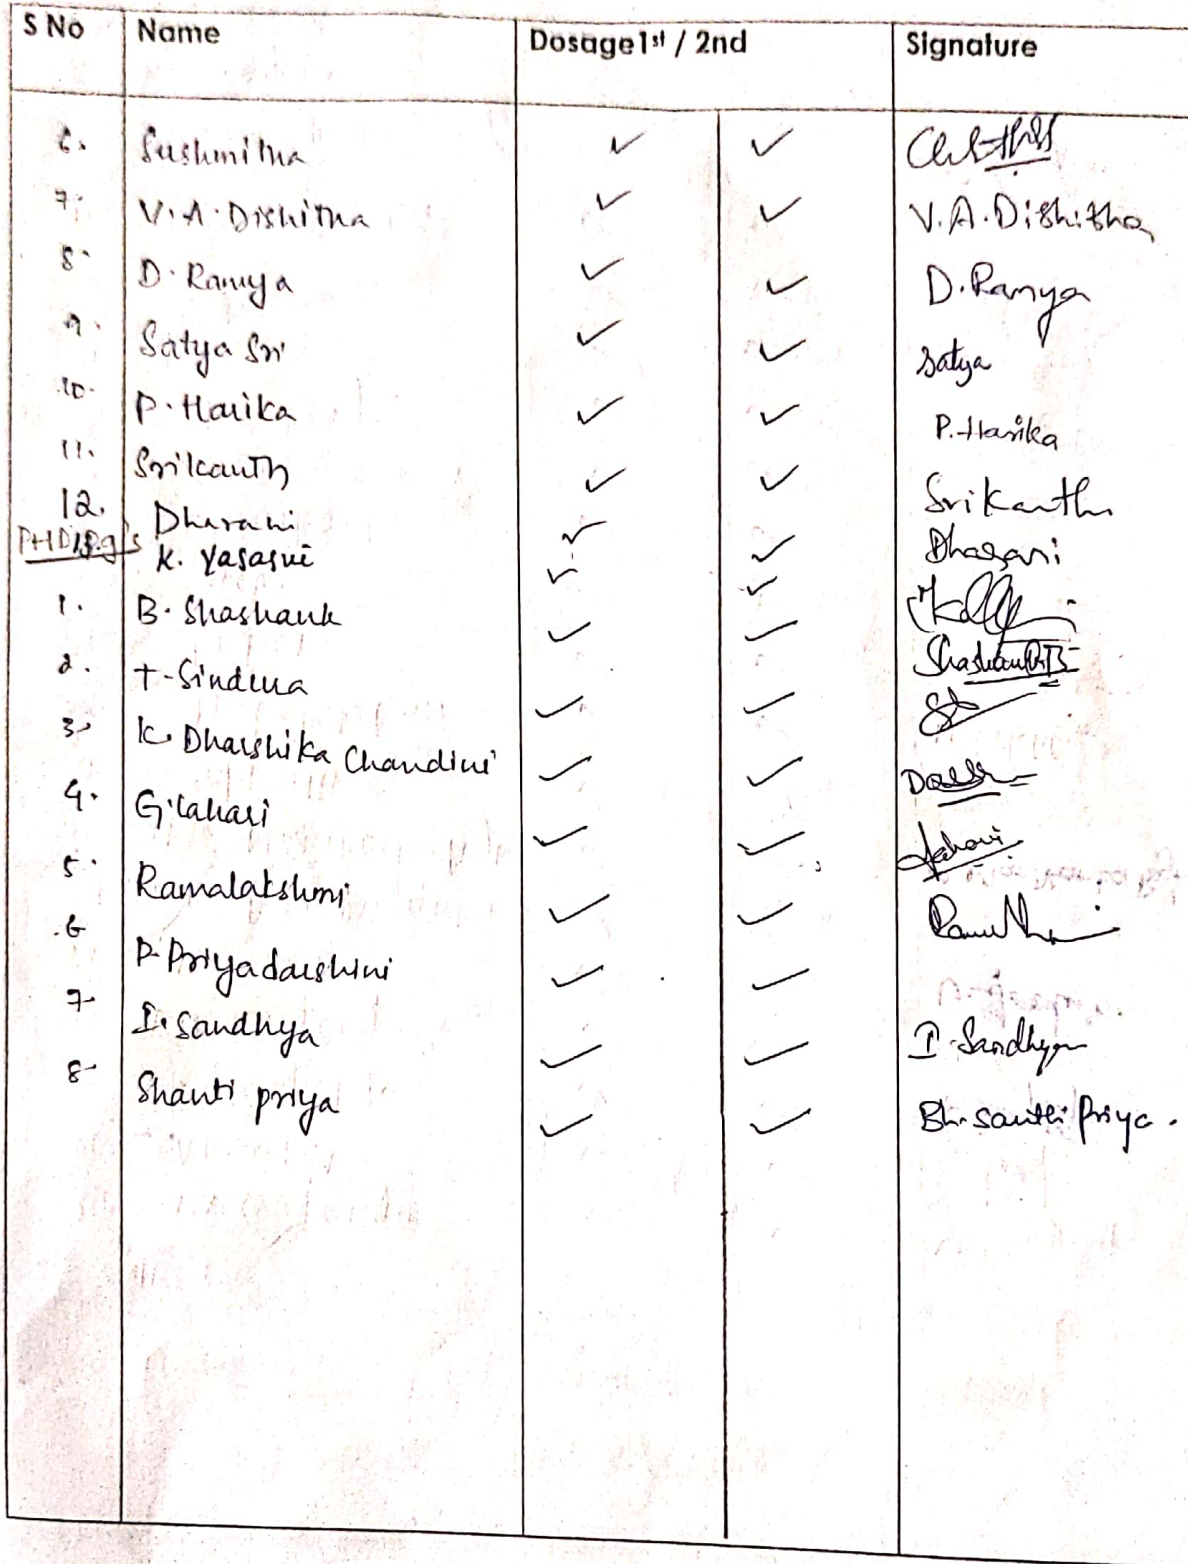 S No Name Dosage 1st / 2nd Signature
6. Sushmitha ✓ ✓
7. V.A. Dishitha ✓ ✓ V.A. Dishitha
8. D. Ramya ✓ ✓ D. Ramya
9. Satya Sri ✓ ✓ Satya
10. P. Harika ✓ ✓ P. Harika
11. Srikanth ✓ ✓ Srikanth
12. Dharani ✓ ✓ Dharani
K. Yasasvi ✓ ✓
1. B. Shashank ✓ ✓ Shashank
2. T. Sindhua ✓ ✓
3. K. Dharshika Chandini ✓ ✓
4. G. Lahari ✓ ✓ Lahari
5. Ramalakshmi ✓ ✓
6 P. Priyadarshini ✓ ✓
7 I. Sandhya ✓ ✓ I. Sandhya
8 Shanti priya ✓ ✓ Bh. Santhi Priya.